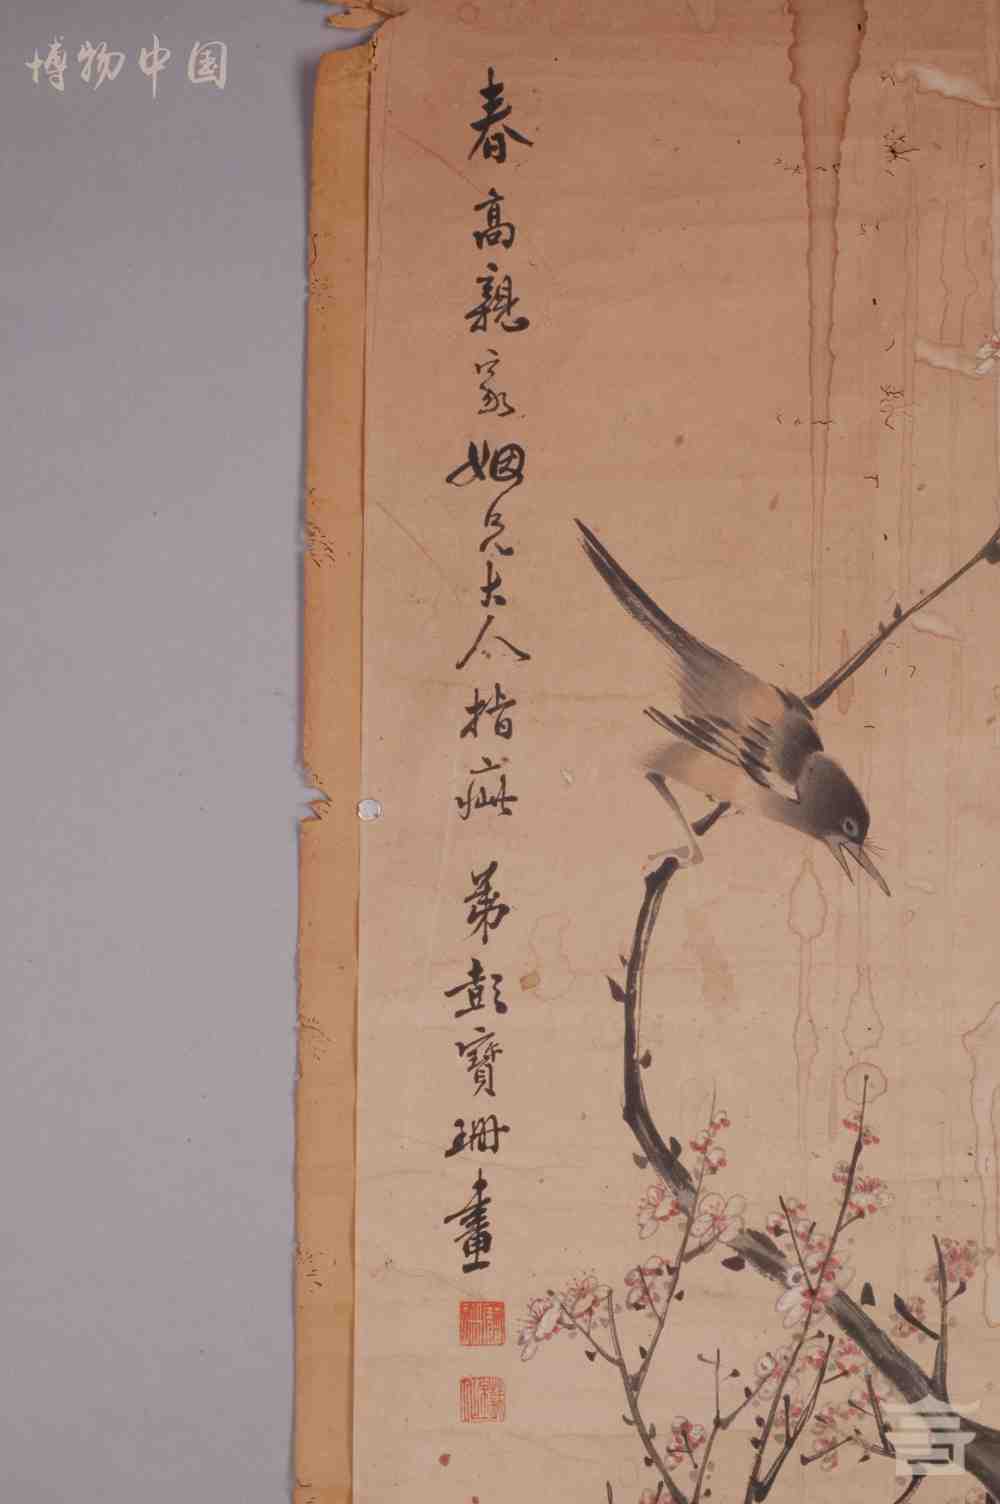 博物中国
春高親家姻兄大人指疵 弟彭寶珊畫